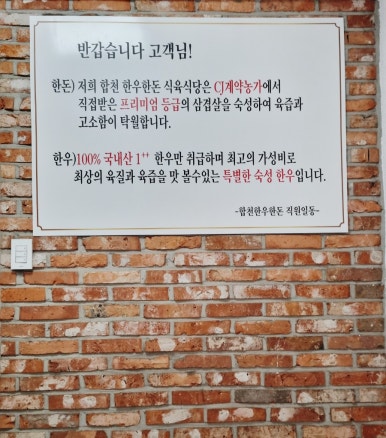 반갑습니다 고객님!
한돈) 저희 합천 한우한돈 식육식당은 CJ계약농가에서
직접받은 프리미엄 등급의 삼겹살을 숙성하여 육즙과
고소함이 탁월합니다.
한우)100% 국내산 1⁺⁺ 한우만 취급하며 최고의 가성비로
최상의 육질과 육즙을 맛 볼수있는 특별한 숙성 한우입니다.
-합천한우한돈 직원일동-